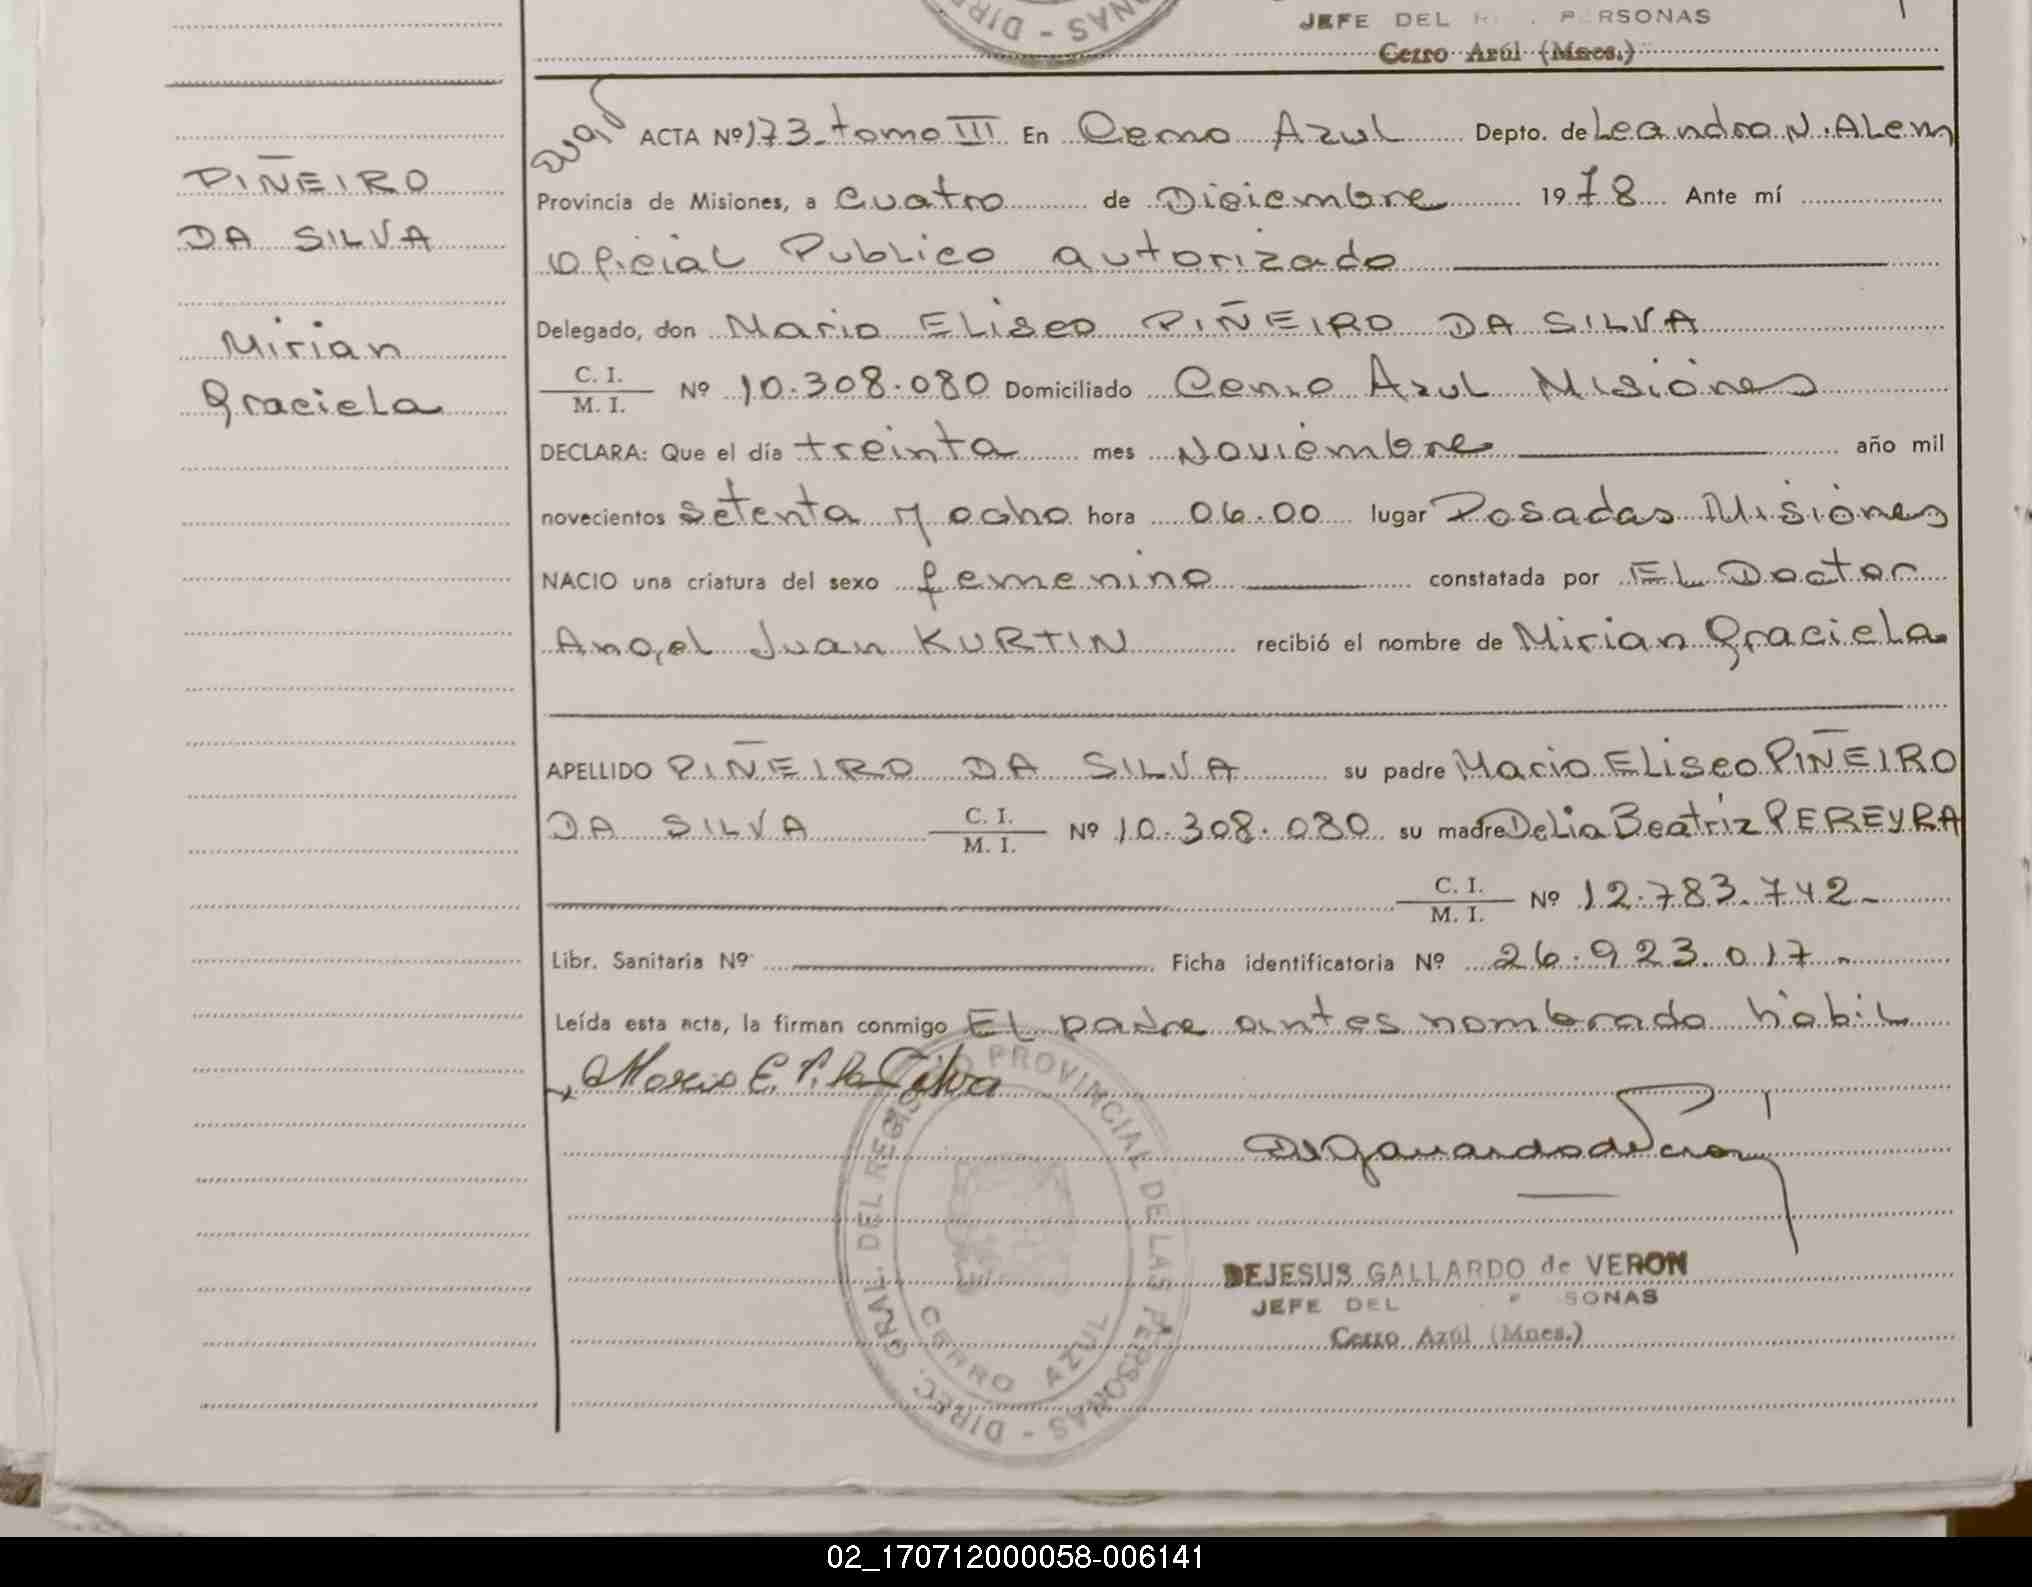 JEFE DEL PERSONAS
Cerro Azúl (Mnes.)
DIREC. - PERSONAS
PIÑEIRO
DA SILVA
Mirian
Graciela
ACTA Nº 173-tomo III En Cerro Azul Depto. de Leandro N. ALem
Provincia de Misiones, a cuatro de Diciembre 1978 Ante mí
Oficial Publico autorizado
Delegado, don Mario Eliseo PIÑEIRO DA SILVA
C. I.
M. I. Nº 10.308.080 Domiciliado Cerro Azul Misiones
DECLARA: Que el día treinta mes Noviembre año mil
novecientos setenta y ocho hora 06.00 lugar Posadas Misiones
NACIO una criatura del sexo femenino constatada por El Doctor
Angel Juan KURTIN recibió el nombre de Mirian Graciela
APELLIDO PIÑEIRO DA SILVA su padre Mario Eliseo PIÑEIRO
DA SILVA C. I.
M. I. Nº 10.308.080 su madre Delia Beatriz PEREYRA
C. I.
M. I. Nº 12.783.742-
Libr. Sanitaria Nº Ficha identificatoria Nº 26.923.017.-
Leída esta acta, la firman conmigo El padre antes nombrado hábil
Mario E. P. da Silva
DEJESUS GALLARDO de VERON
JEFE DEL SONAS
Cerro Azúl (Mnes.)
DIREC. GRAL. DEL REGISTRO PROVINCIAL DE LAS PERSONAS -
CERRO AZUL
02_170712000058-006141